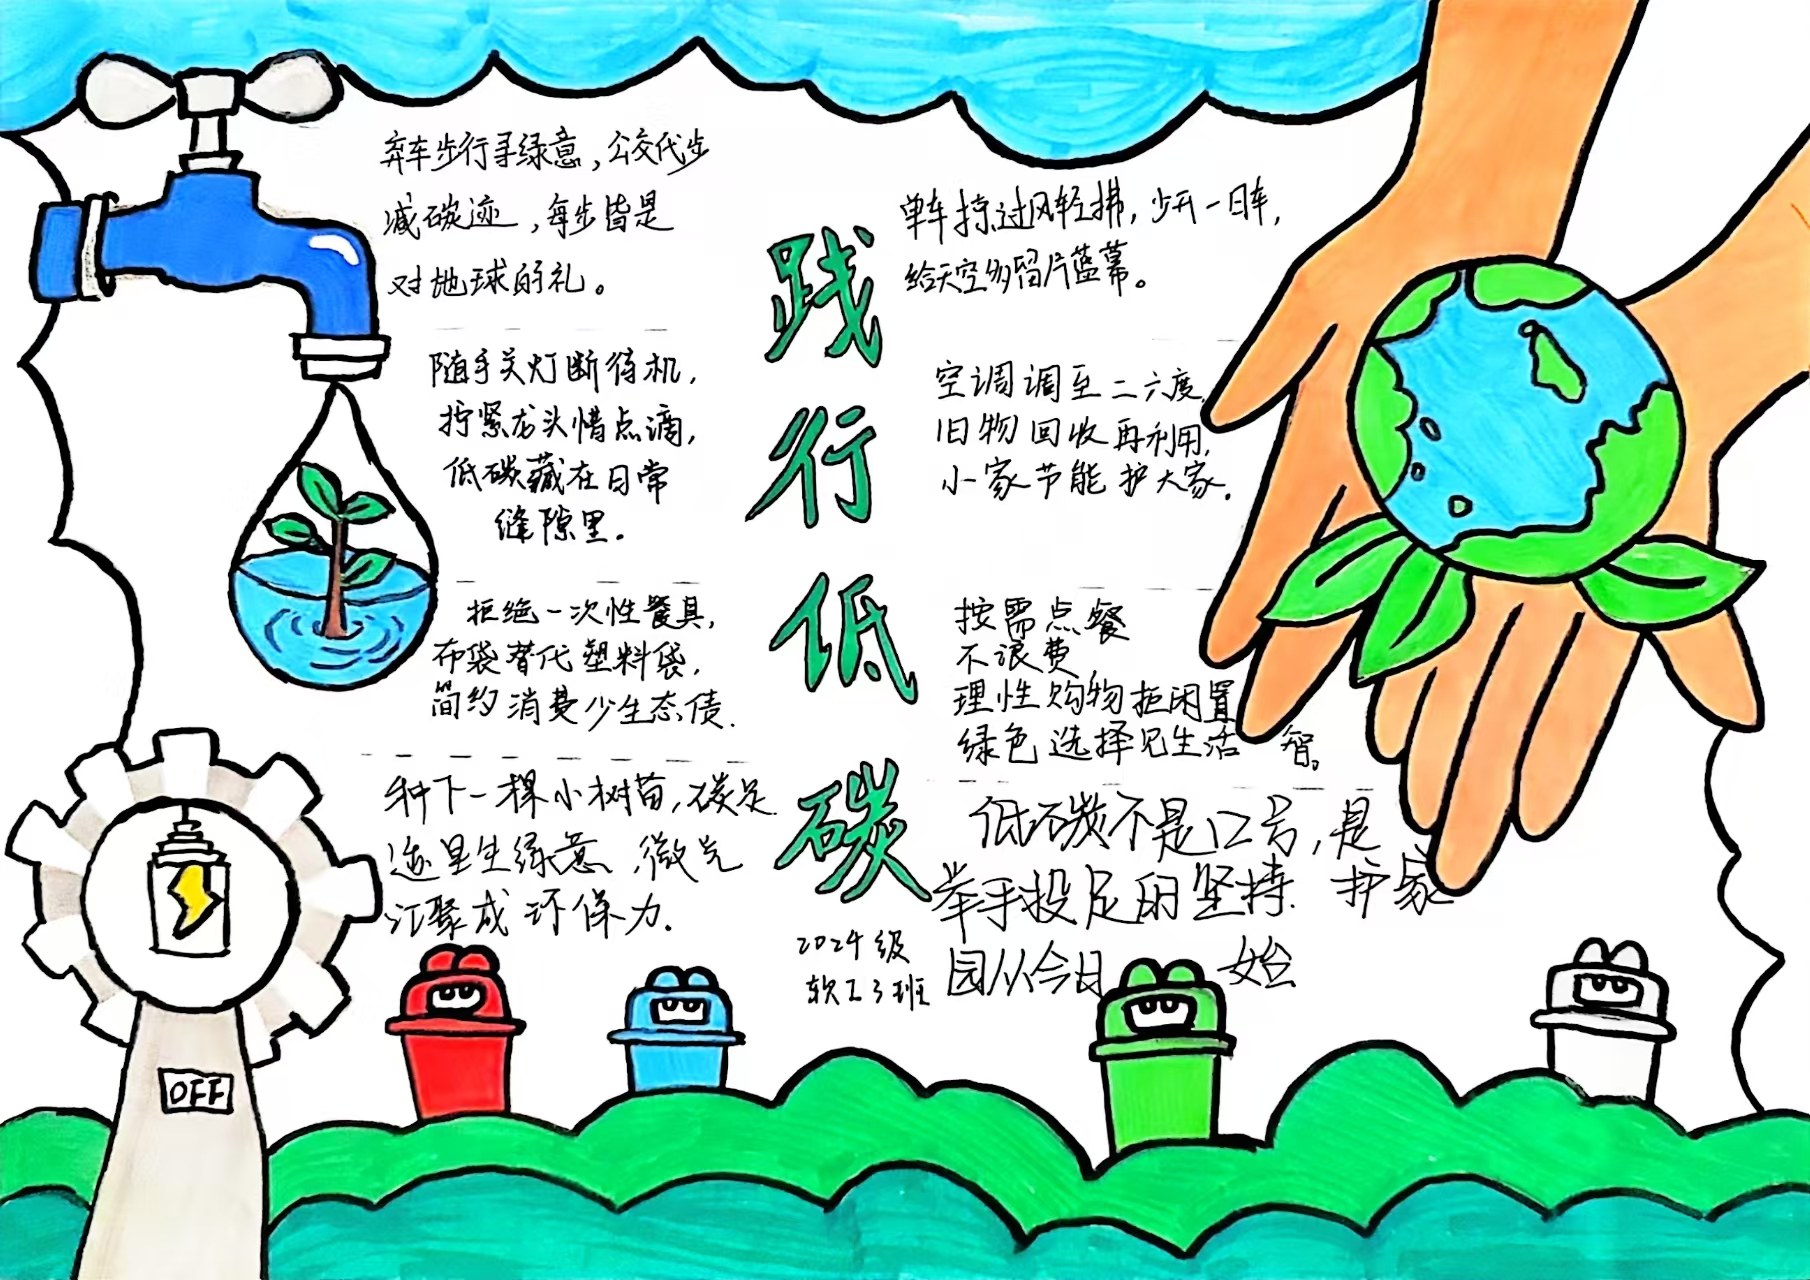 践行低碳
弃车步行寻绿意,公交代步
减碳迹,每步皆是
对地球的礼。
随手关灯断待机,
拧紧龙头惜点滴,
低碳藏在日常
缝隙里。
拒绝一次性餐具,
布袋替代塑料袋,
简约消费少生态债.
种下一棵小树苗,碳足
迹里生绿意,微光
汇聚成环保力.
单车掠过风轻拂,少开一日车,
给天空多留片蓝幕。
空调调至二六度,
旧物回收再利用,
小家节能护大家.
按需点餐
不浪费,
理性购物拒闲置
绿色选择见生活 智。
低碳不是口号,是
举手投足的坚持. 护家
园从今日 始
2024级
软工3班
OFF